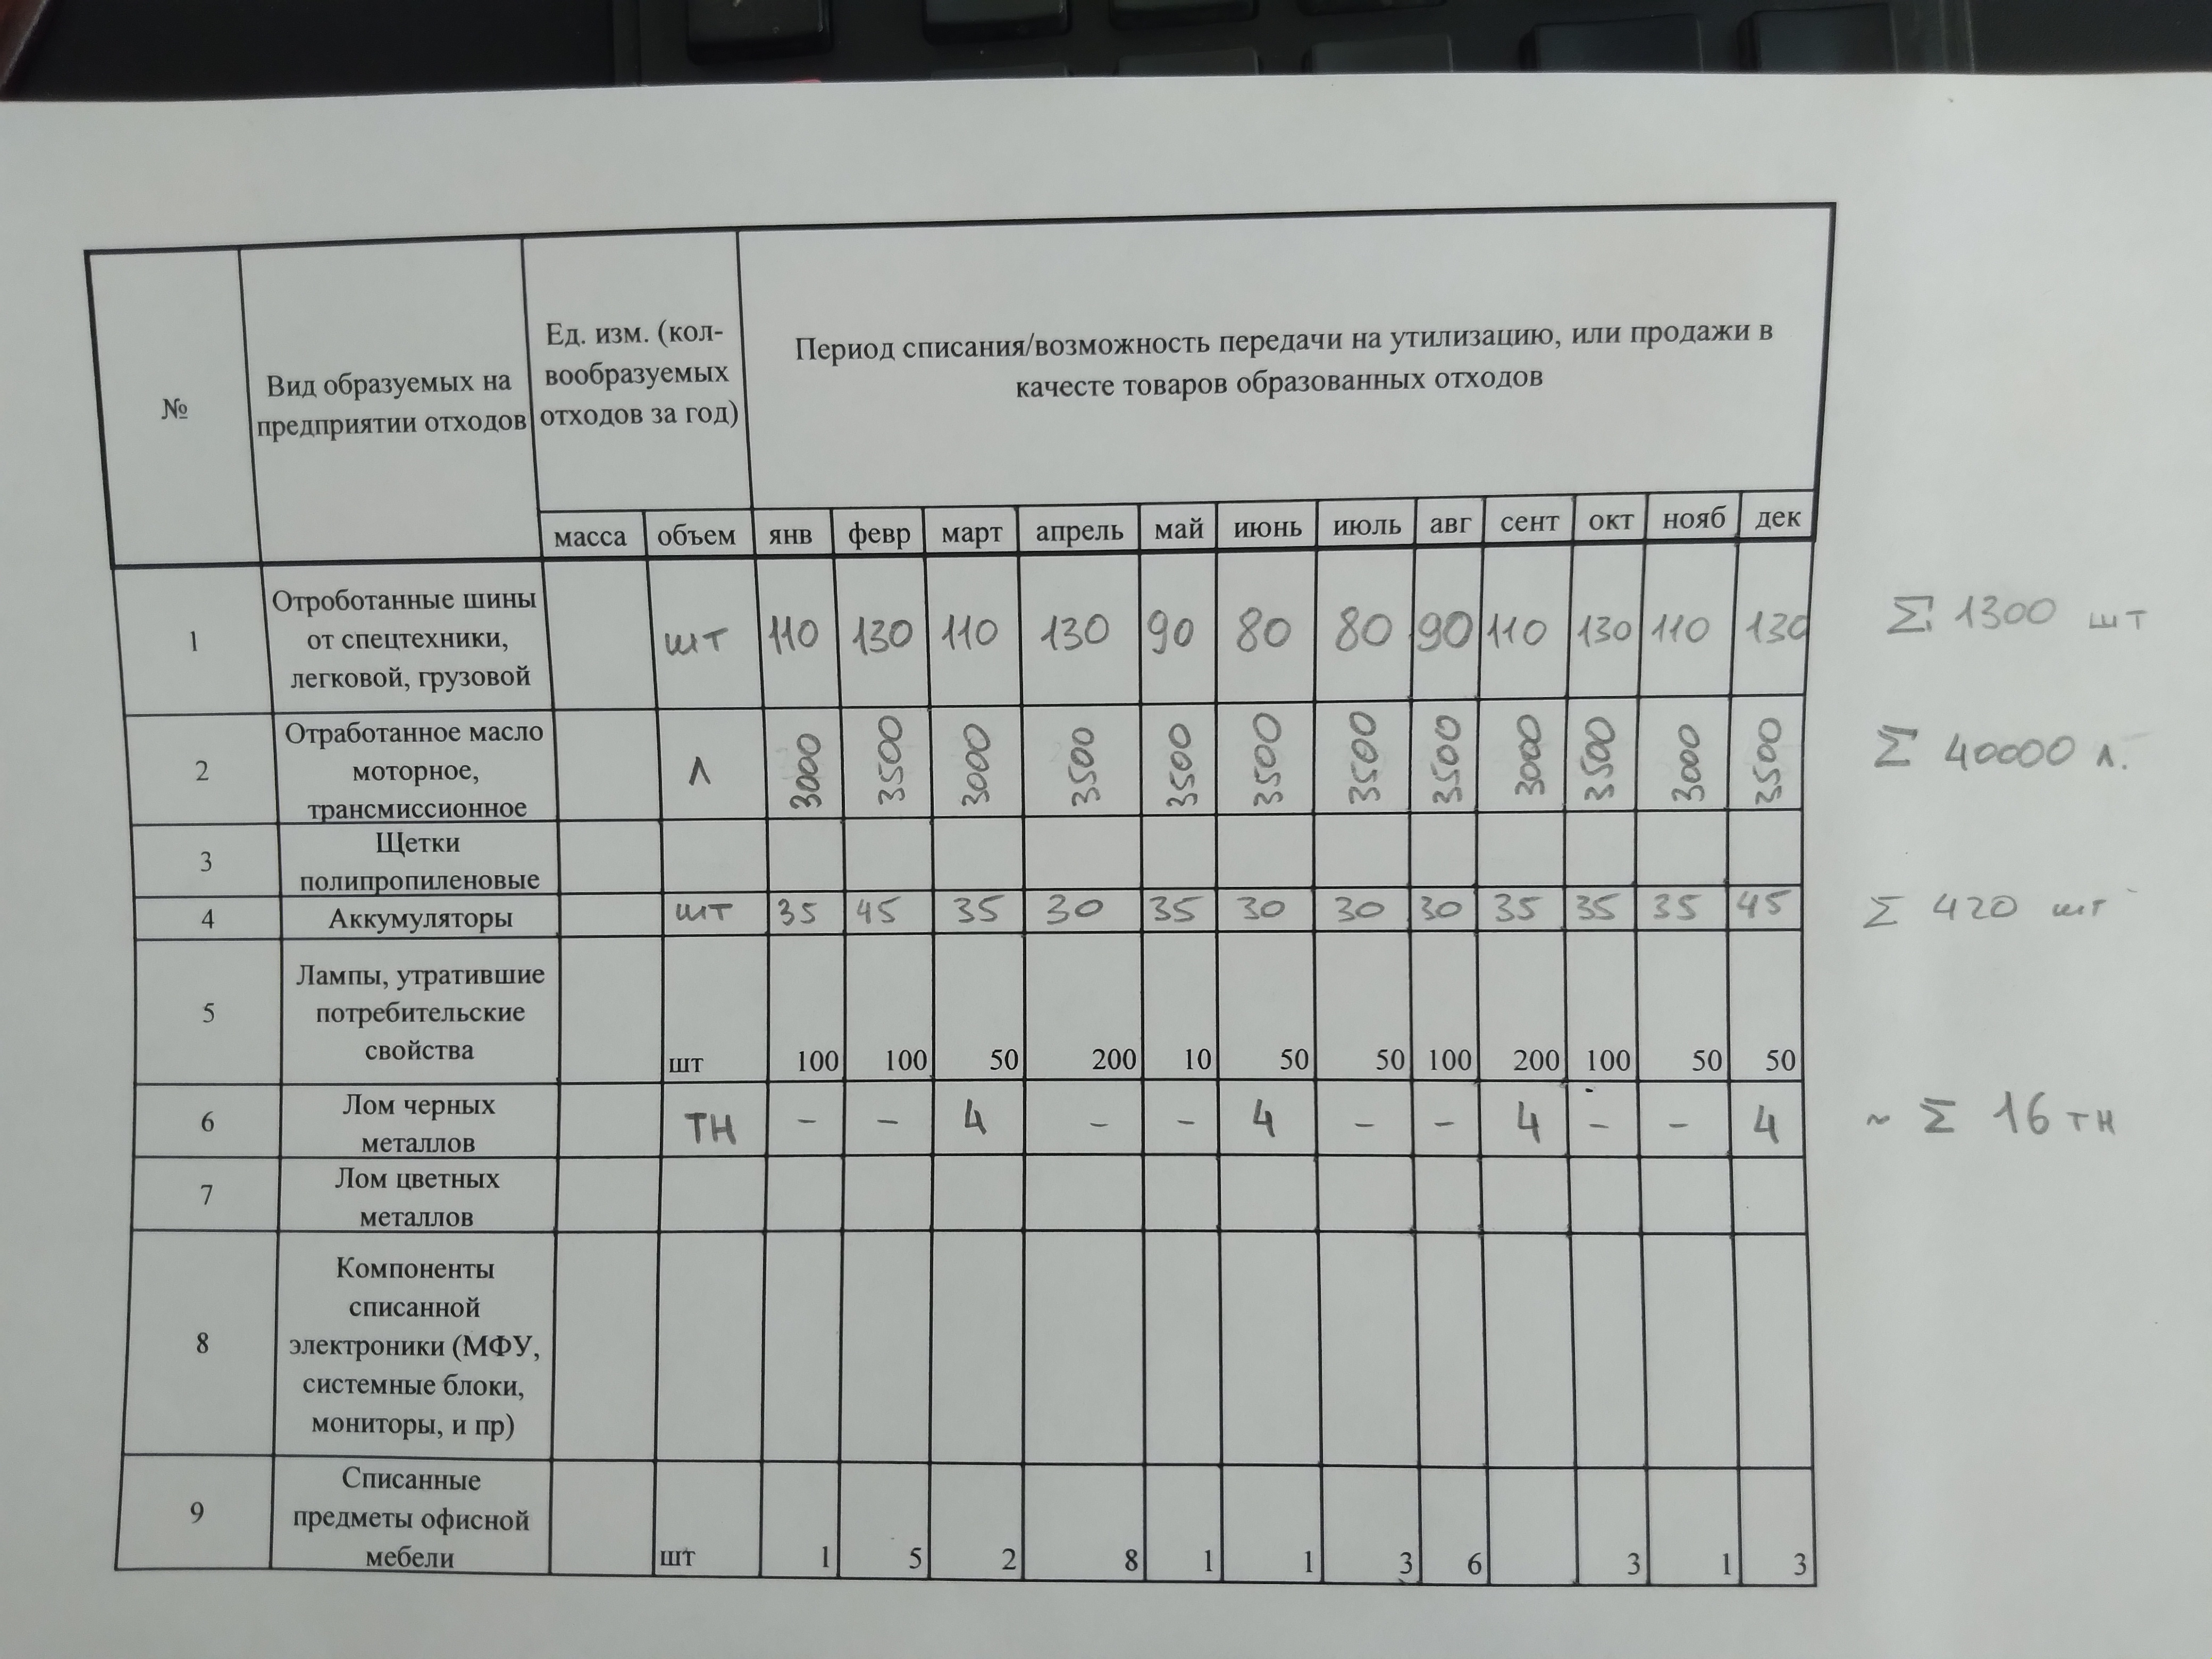 №
Вид образуемых на
предприятии отходов
Ед. изм. (кол-
вообразуемых
отходов за год)
Период списания/возможность передачи на утилизацию, или продажи в
качесте товаров образованных отходов
масса объем янв февр март апрель май июнь июль авг сент окт нояб дек
1
Отроботанные шины
от спецтехники,
легковой, грузовой
шт 110 130 110 130 90 80 80 90 110 130 110 130
Σ 1300 шт
2
Отработанное масло
моторное,
трансмиссионное
л 3000 3500 3000 3500 3500 3500 3500 3500 3000 3500 3000 3500
Σ 40000 л.
3
Щетки
полипропиленовые
4 Аккумуляторы шт 35 45 35 30 35 30 30 30 35 35 35 45
Σ 420 шт
5
Лампы, утратившие
потребительские
свойства
шт 100 100 50 200 10 50 50 100 200 100 50 50
6
Лом черных
металлов
тн - - 4 - - 4 - - 4 - - 4
~ Σ 16 тн
7
Лом цветных
металлов
8
Компоненты
списанной
электроники (МФУ,
системные блоки,
мониторы, и пр)
9
Списанные
предметы офисной
мебели
шт 1 5 2 8 1 1 3 6 3 1 3